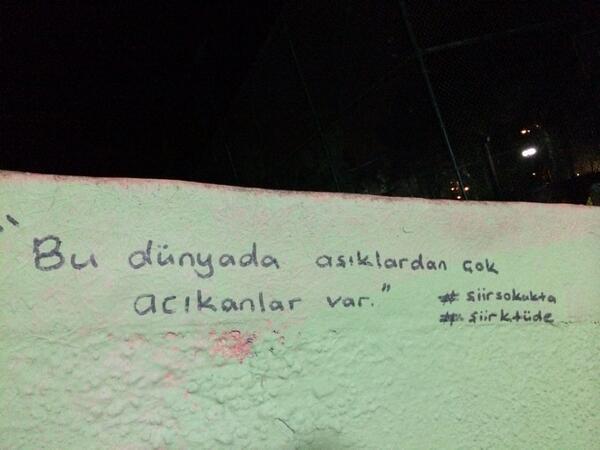 "Bu dünyada aşıklardan çok
acıkanlar var."
# şiirsokukta
# şiirktüde